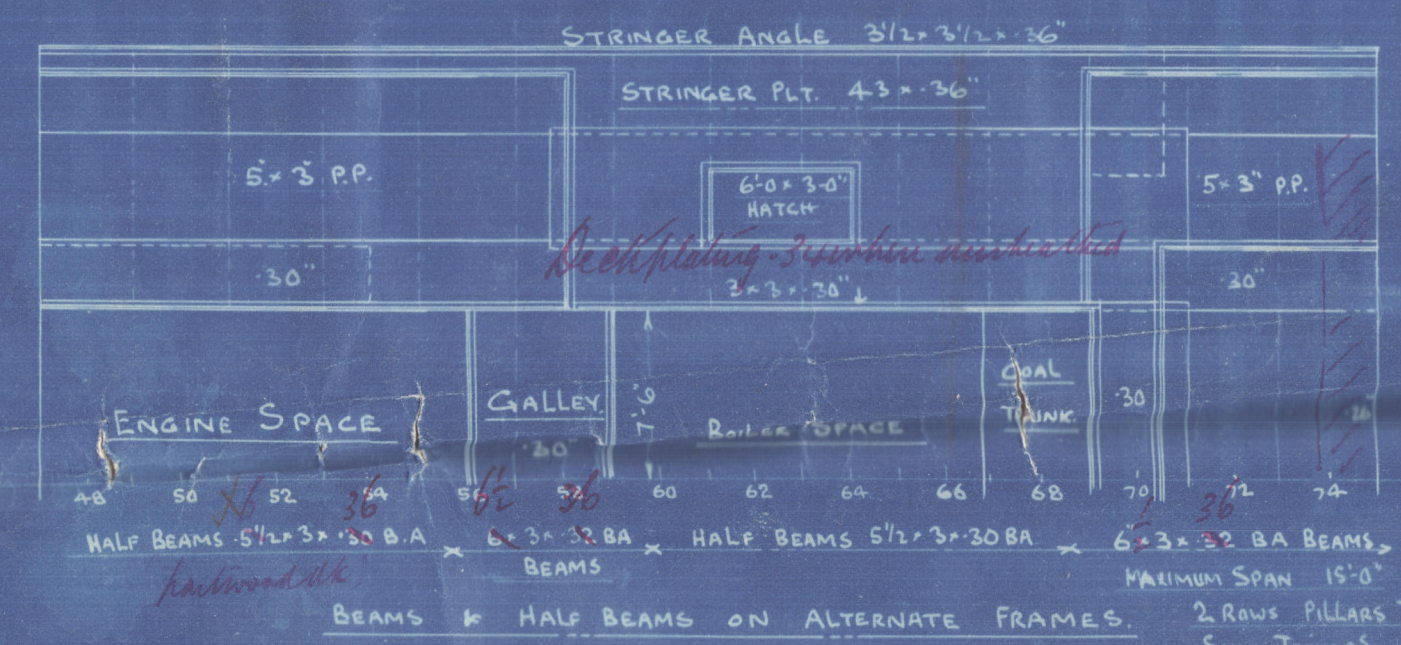 STRINGER ANGLE 3 1/2 × 3 1/2 × .36"
STRINGER PLT. 43 × .36"
5" × 3" P.P.
6'-0" × 3'-0"
HATCH
5 × 3" P.P.
Deck plating .34 when unsheathed
.30"
3 × 3 × .30"
.30"
ENGINE SPACE
GALLEY
.30"
7'-6"
BOILER SPACE
COAL
TRUNK.
.30
48 50 52 54 56 58 60 62 64 66 68 70 72 74
36 36 36
HALF BEAMS .5 1/2 × 3 × .30 B.A
6 × 3 × .32 BA
BEAMS
HALF BEAMS 5 1/2 × 3 × .30 BA
6" × 3 × .32 BA BEAMS
MAXIMUM SPAN 15'-0"
2 ROWS PILLARS
BEAMS & HALF BEAMS ON ALTERNATE FRAMES.